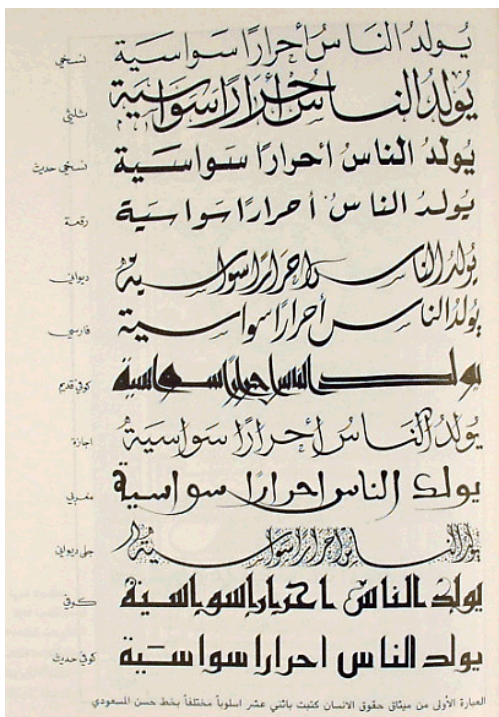 يُولدُ النَاسُ أحرارًا سواسيَة نسخي
يُولدُ الناسُ أحرَارًا سَواسيَة ثلثي
يُولدُ الناسُ أحرارًا سَواسيَة نسخي حديث
يُولدُ الناسُ أحرارًا سواسيَة رقعة
يُولدُ الناس احرَارًا سواسية ديواني
يُولدُ الناس أحرارًا سواسية فارسي
يولد الناس احرارا سواسية كوفي قديم
يُولدُ النَاسُ أحرارًا سَواسيَة اجازة
يولد الناس احرارًا سواسية مغربي
يولد الناس احرارا سواسية جلي ديواني
يولد الناس احرارا سواسية كوفي
يولد الناس احرارا سواسيَة كوفي حديث
العبارة الأولى من ميثاق حقوق الانسان كتبت باثني عشر اسلوباً مختلفاً بخط حسن المسعودي